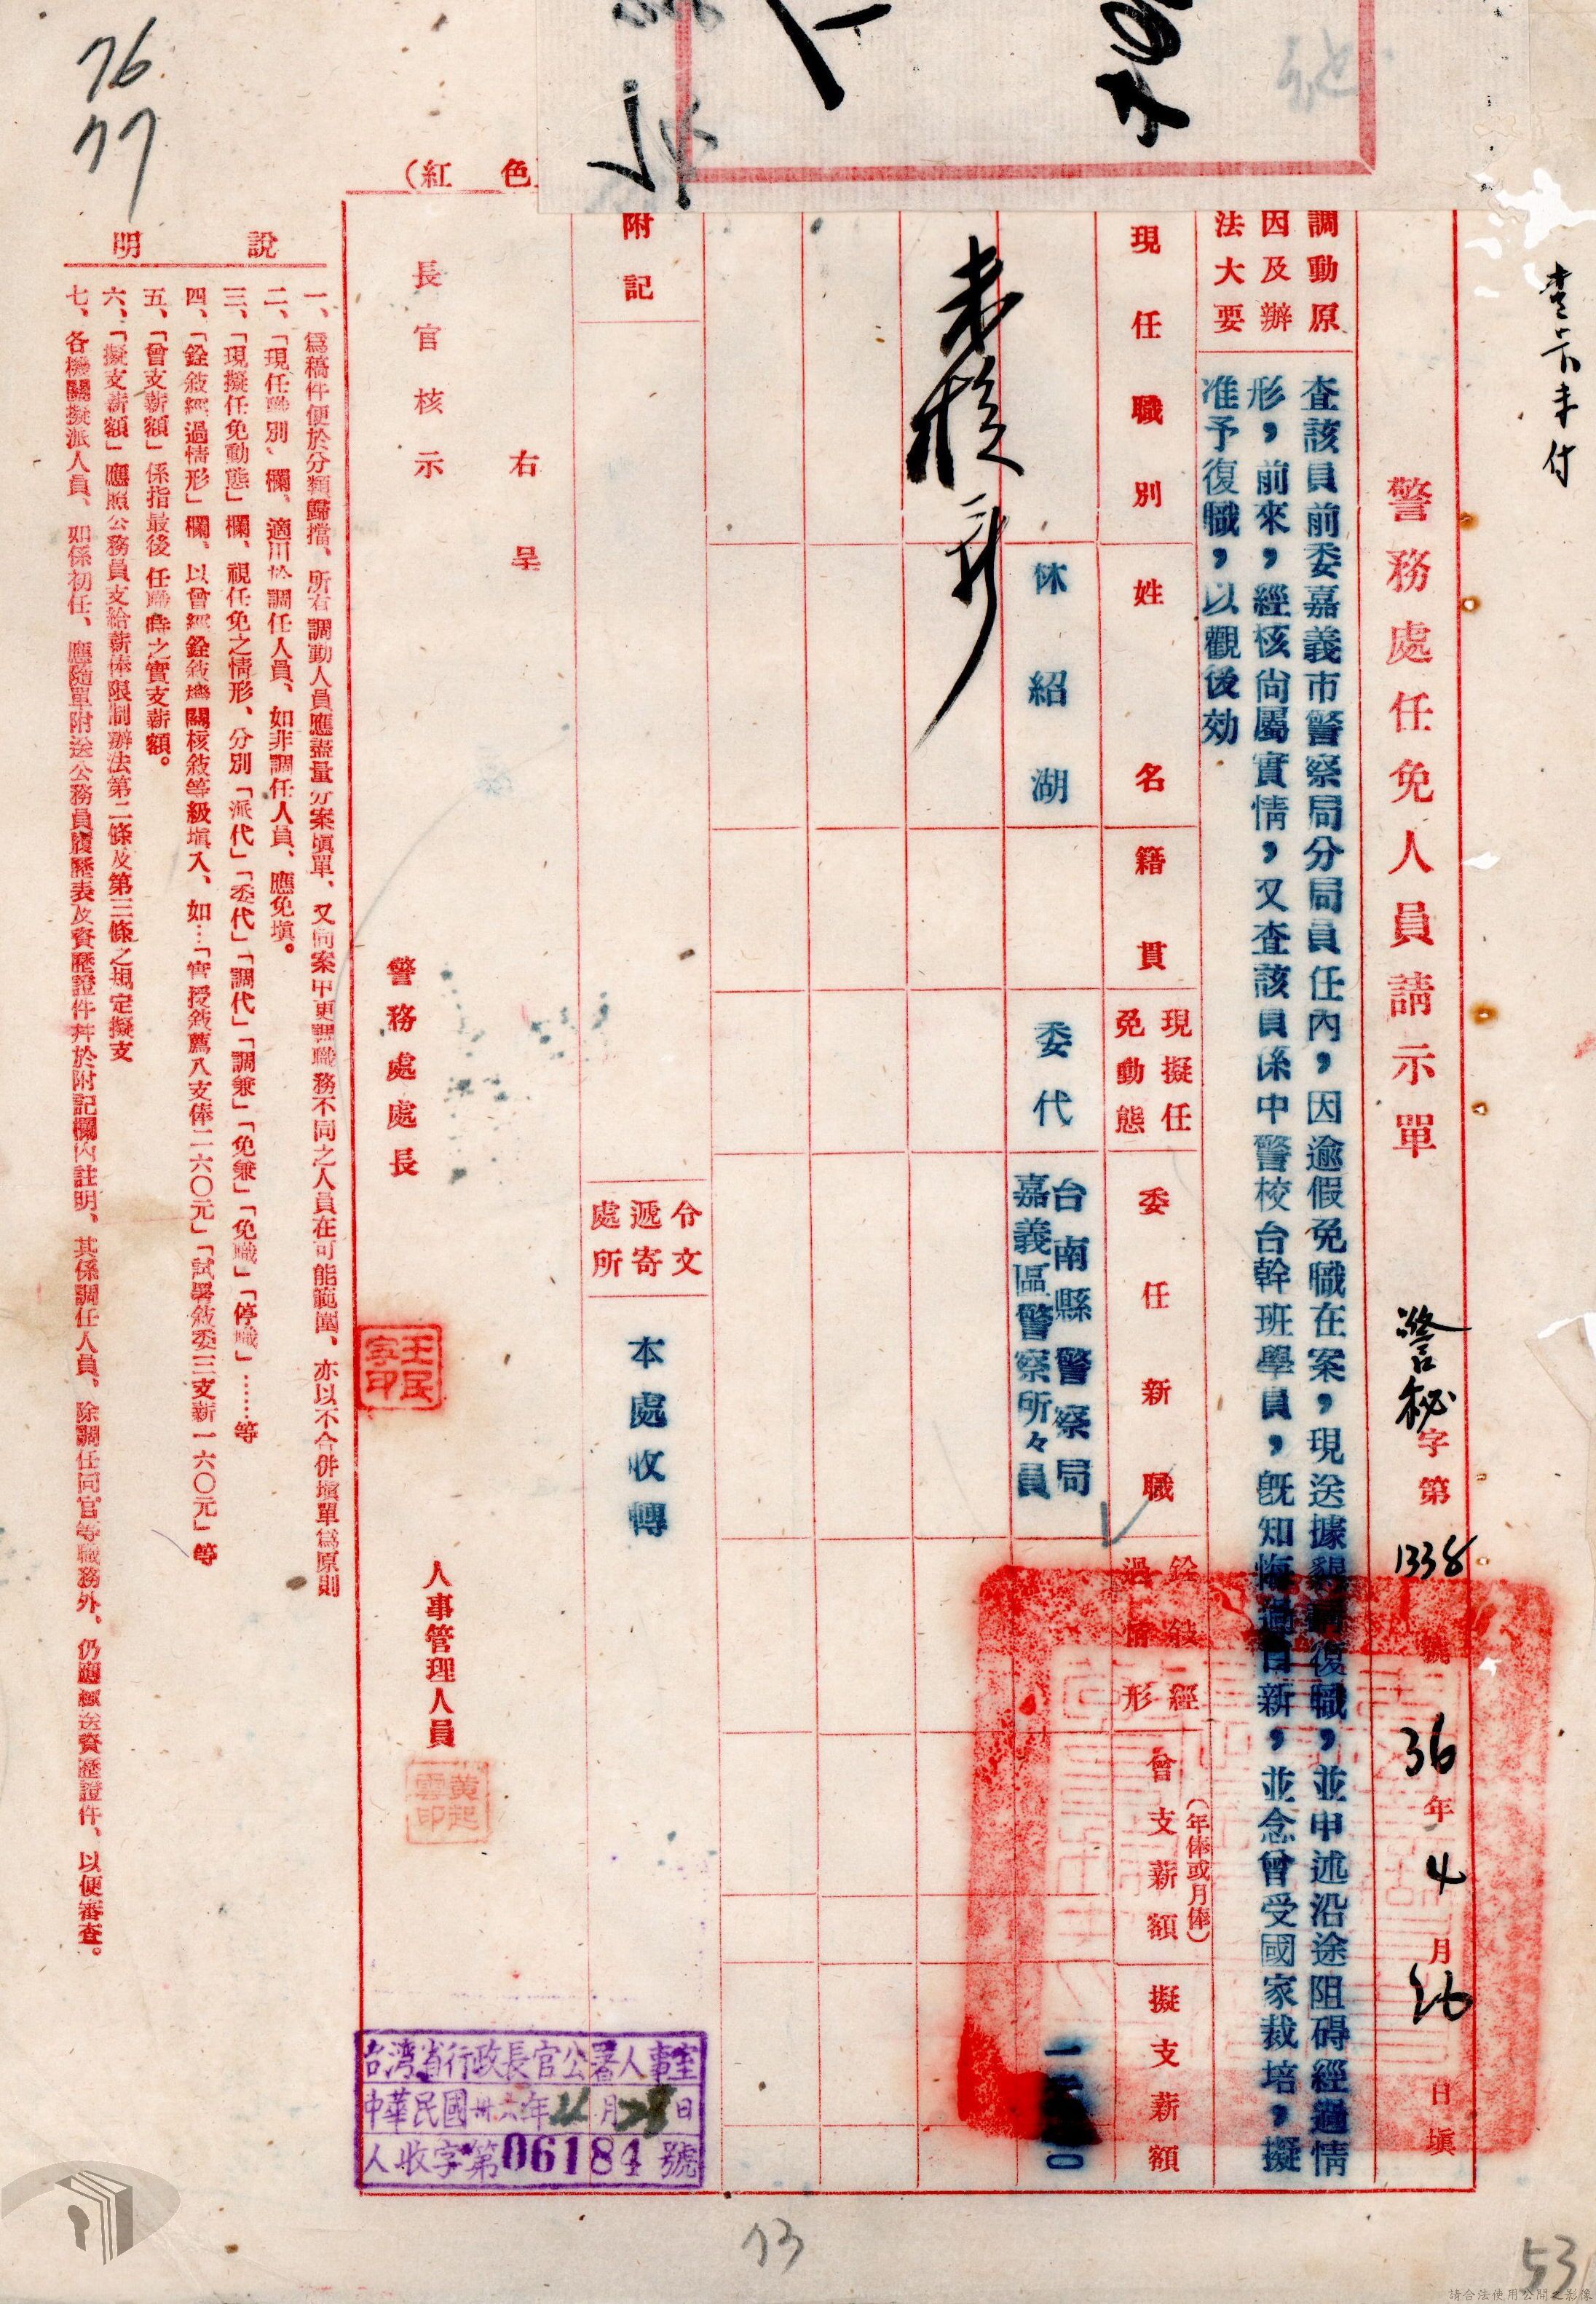 查卡未付
警務處任免人員請示單 警秘字第1338號 36年4月26日填
調動原因及辦法大要
查該員前委嘉義市警察局分局員任內，因逾假免職在案，現送據懇請復職，並申述沿途阻碍經過情
形，前來，經核尙屬實情，又查該員係中警校台幹班學員，既知悔過自新，並念曾受國家栽培，擬
准予復職，以觀後効
現任職別
姓名
籍貫
現擬任免動態
委任新職
銓敍經過情形
曾支薪額（年俸或月俸）
擬支薪額
林紹湖
委代
台南縣警察局
嘉義區警察所々員
未核章
附記
令文遞寄處所
本處收轉
右呈
長官核示
警務處處長
王民寧印
人事管理人員
黃起雲印
台灣省行政長官公署人事室
中華民國卅六年 月28日
人收字第06184號
（紅色
說明
一、爲稿件便於分類歸擋、所有調動人員應盡量分案塡單、又同案中更調職務不同之人員在可能範圍、亦以不合併塡單爲原則
二、「現任職別」欄、適用於調任人員、如非調任人員、應免塡。
三、「現擬任免動態」欄、視任免之情形、分別「派代」「委代」「調代」「調兼」「免兼」「免職」「停職」……等
四、「銓敍經過情形」欄、以曾經銓敍機關核敍等級塡入、如…「實授敍薦八支俸二六〇元」「試署敍委三支薪一六〇元」等
五、「曾支薪額」係指最後任職時之實支薪額。
六、「擬支薪額」應照公務員支給薪俸限制辦法第二條及第三條之規定擬支
七、各機關擬派人員、如係初任、應隨單附送公務員履歷表及資歷證件幷於附記欄內註明、其係調任人員、除調任同官等職務外、仍應檢送資歷證件、以便審查。
76
77
73
53
請合法使用公開之影像